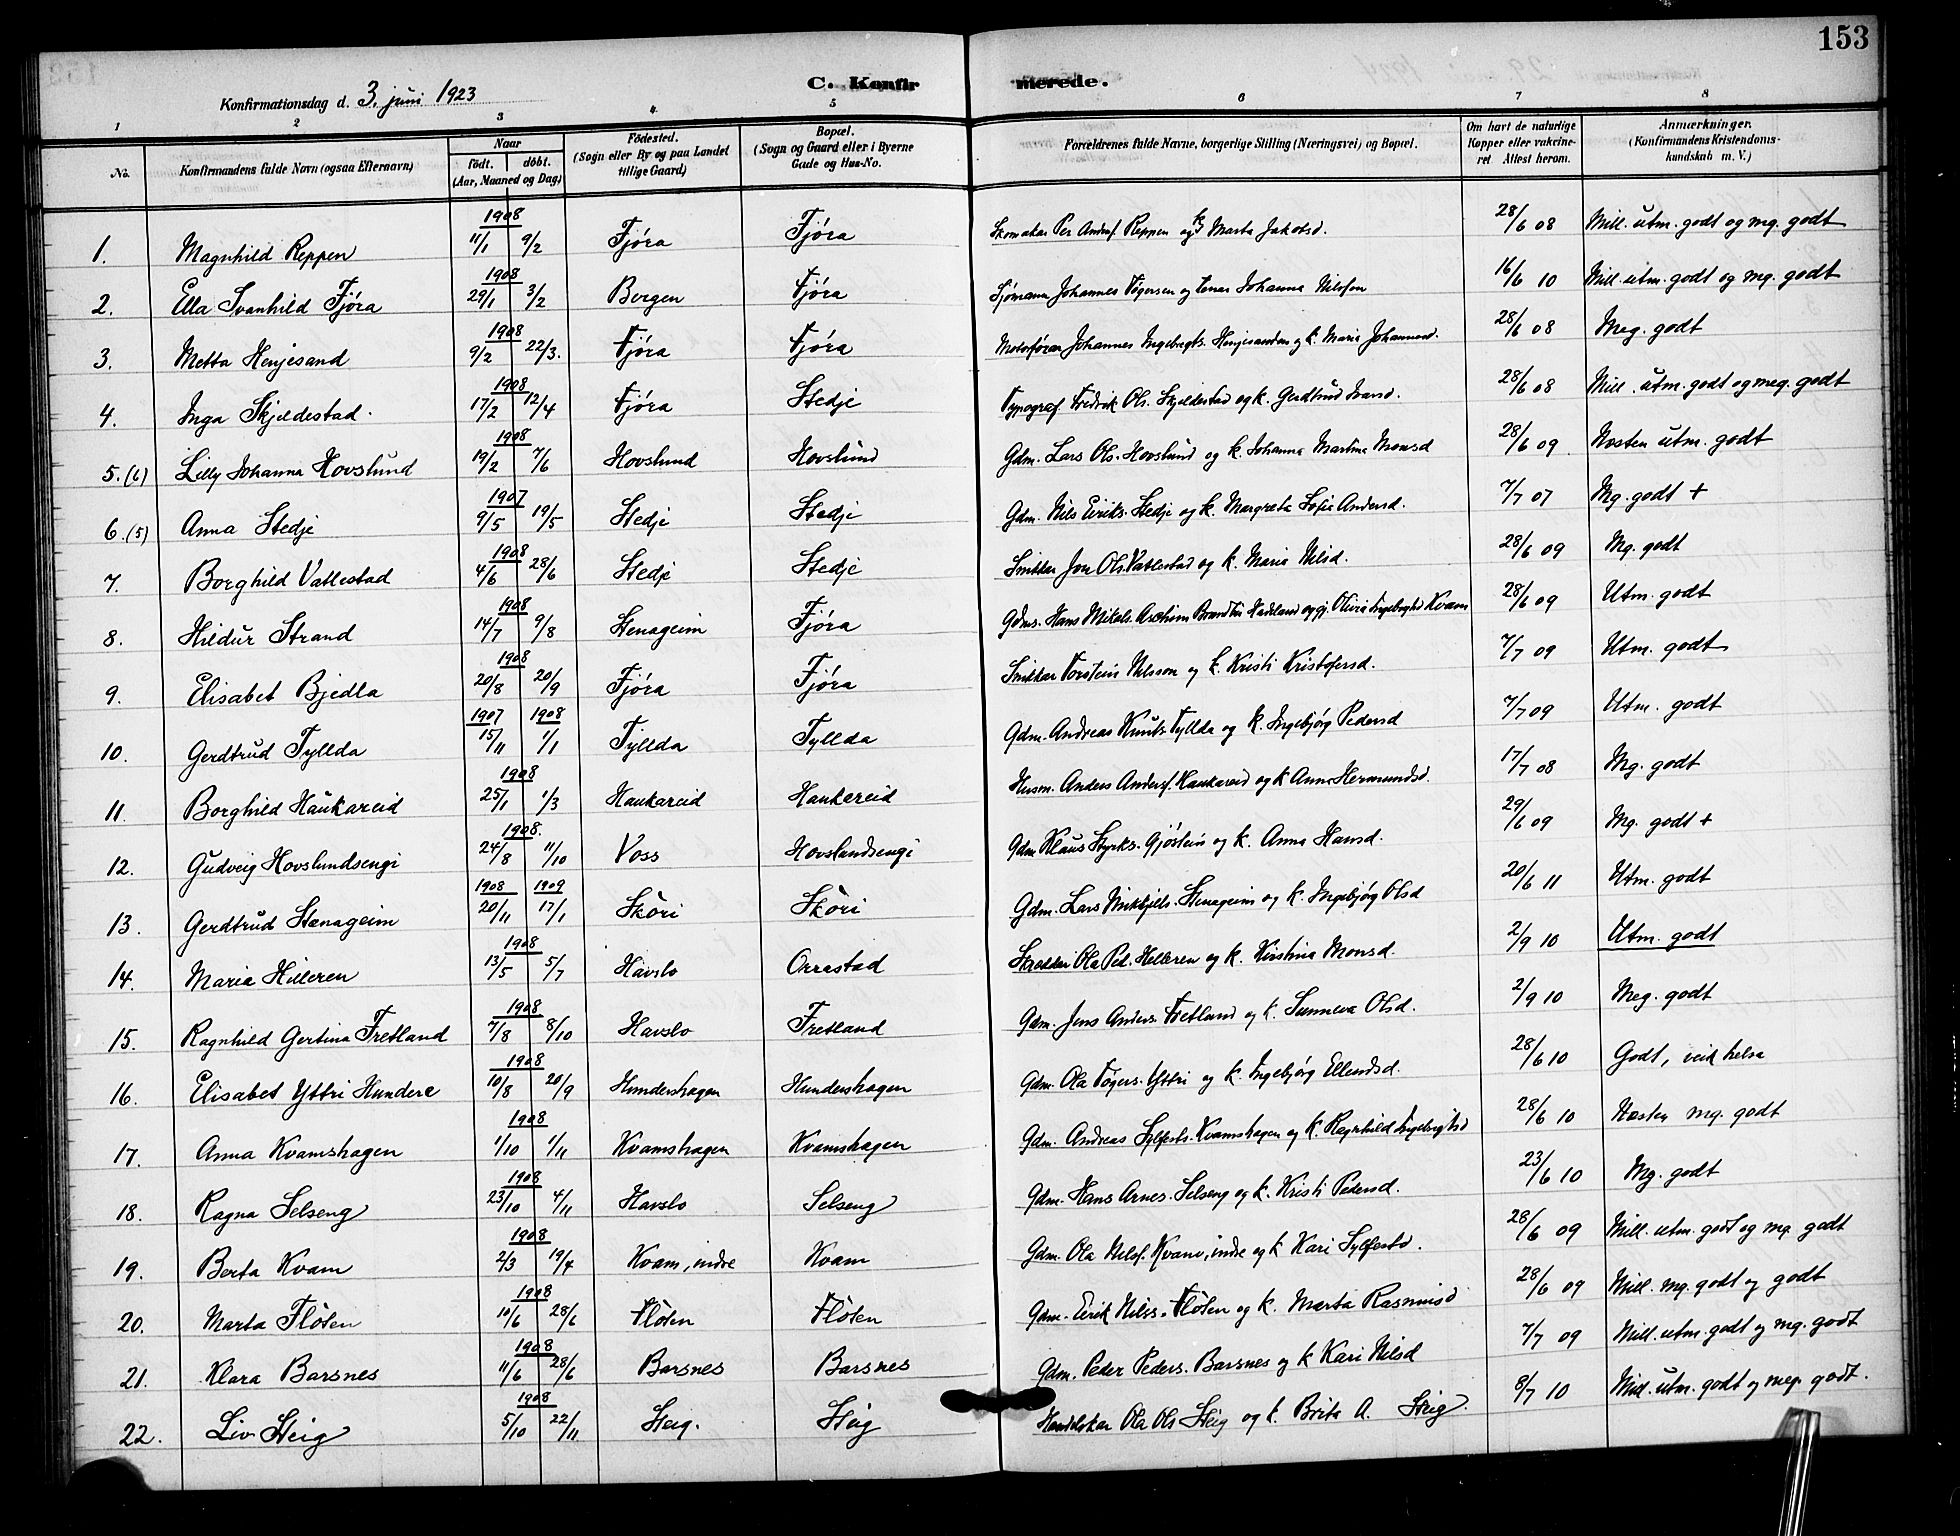 153
C. Konfirmerede.
Konfirmationsdag d. 3. juni 1923
1 2 3 4 5 6 7 8
No. Konfirmandens fulde Navn (ogsaa Efternavn) Naar født. døbt. (Aar, Maaned og Dag) Födested. (Sogn eller By og paa Landet tillige Gaard) Bopæl. (Sogn og Gaard eller i Byerne Gade og Hus-No. Forældrenes fulde Navne, borgerlige Stilling (Næringsvei) og Bopæl. Om havt de naturlige Kopper eller vakcineret. Attest herom. Anmærkninger. (Konfirmandens Kristendomskundskab m. V.)
1. Magnhild Reppen 1908 11/1 9/2 Fjøra Fjøra Skomakar Per Andrs. Reppen og k Marta Jakobsd. 28/6 08 Mill. utm. godt og mg. godt
2. Ella Svanhild Fjøra 1908 29/1 3/2 Bergen Fjøra Sjømann Johannes Vögersen og Johanna Nilsen 16/6 10 Mill. utm. godt og mg. godt
3. Metta Henjesand 1908 9/2 22/3. Fjøra Fjøra Motorförar Johannes Ingebrigts. Henjesanden og k. Marie Johannesd. 28/6 08 Meg. godt
4. Inga Skjeldestad. 1908 17/2 12/4 Fjøra Stedje Typograf Fredrik Ols. Skjeldestad og k. Gerdtrud Ivarsd. 28/6 08 Mill. utm. godt og meg. godt
5. (6) Lilly Johanna Hovslund 1908 19/2 7/6 Hovslund Hovslund Gdm. Lars Ols. Hovslund og k. Johanna Martina Monsd 28/6 09 Nesten utm. godt
6. (5) Anna Stedje 1907 9/5 19/5 Stedje Stedje Gdm. Nils Eiriks. Stedje og k. Margreta Sofie Andersd. 7/7 07 Mg. godt +
7. Borghild Vatlestad 1908 4/6 28/6 Stedje Stedje Snikkar Jon Ols. Vatlestad og k. Maria Nilsd. 28/6 09 Mg. godt
8. Hildur Strand 1908 14/7 9/8 Stenageim Fjøra Gdms. Hans Mikals. Hadeland og gj. Olivia Ingebrigtsd Kvam 28/6 09 Utm. godt
9. Elisabet Bjedla 1908 20/8 20/9 Fjøra Fjøra Snikkar Torstein Nilsson og k. Kristi Kristofersd. 7/7 09 Utm. godt
10. Gerdtrud Tyllda 1907 15/11 1908 1/1 Tyllda Tyllda Gdm. Andreas Knuts. Tyllda og k. Ingebjørg Pedersd 7/7 09 Utm. godt
11. Borghild Haukareid 1908 25/1 1/3 Haukareid Haukareid Husm. Anders Anders. Haukareid og k Anna Hermundsd. 17/7 08 Mg. godt
12. Gudveig Hovslundsengi 1908. 24/8 11/10 Voss Hovslandsengi Gdm Klaus Styrks. Gjøstein og k. Anna Hansd. 29/6 09 Mg. godt +
13. Gerdtrud Stenageim 1908 20/11 1909 17/1 Skøri Skøri Gdm. Lars Mikkjels. Stenageim og k. Ingebjørg Olsd 20/6 11 Utm. godt
14. Maria Hilleren 1908 13/5 5/7 Havslo Orrestad Skredder Ola Ped. Hilleren og k. Kirstina Monsd. 2/9 10 Utm. godt
15. Ragnhild Gertina Fretland 1908 7/8 8/10 Havslo Fretland Gdm. Jens Anders. Fretland og k. Sunneva Olsd. 2/9 10 Meg. godt
16. Elisabet Yttri Hundere 1908 10/8 20/9 Hundershagen Hundershagen Gdm. Ola Vögers. Yttri og k. Ingebjørg Ellendsd. 28/6 10 Godt, veik helsa
17. Anna Kvamshagen 1908 1/10 1/11 Kvamshagen Kvamshagen Gdm. Andreas Sylfests. Kvamshagen og k. Ragnhild Ingebrigtsd 28/6 10 Nesten mg. godt
18. Ragna Selseng 1908 23/10 4/11 Havslo Selseng Gdm. Hans Arnes. Selseng og k. Kristi Pedersd. 23/6 10 Mg. godt
19. Berta Kvam 1908 2/3 19/4 Kvam, indre Kvam Gdm. Ola Nils. Kvam, indre og k Kari Sylfestd. 28/6 09 Mill. utm. godt og mg. godt
20. Marta Fløten 1908 10/6 28/6 Fløten Fløten Gdm. Eirik Nilss. Fløten og k. Marta Rasmusd 28/6 09 Mill. mg. godt og godt
21. Klara Barsnes 1908 11/6 28/6 Barsnes Barsnes Gdm. Peder Peders. Barsnes og k Kari Nilsd 7/7 09 Mill. utm. godt og mg. godt
22. Liv Steig 1908 5/10 22/11 Steig. Steig Handelskar Ola Ols Steig og k. Brita A. Steig. 8/7 10 Mill. utm. godt og meg. godt.